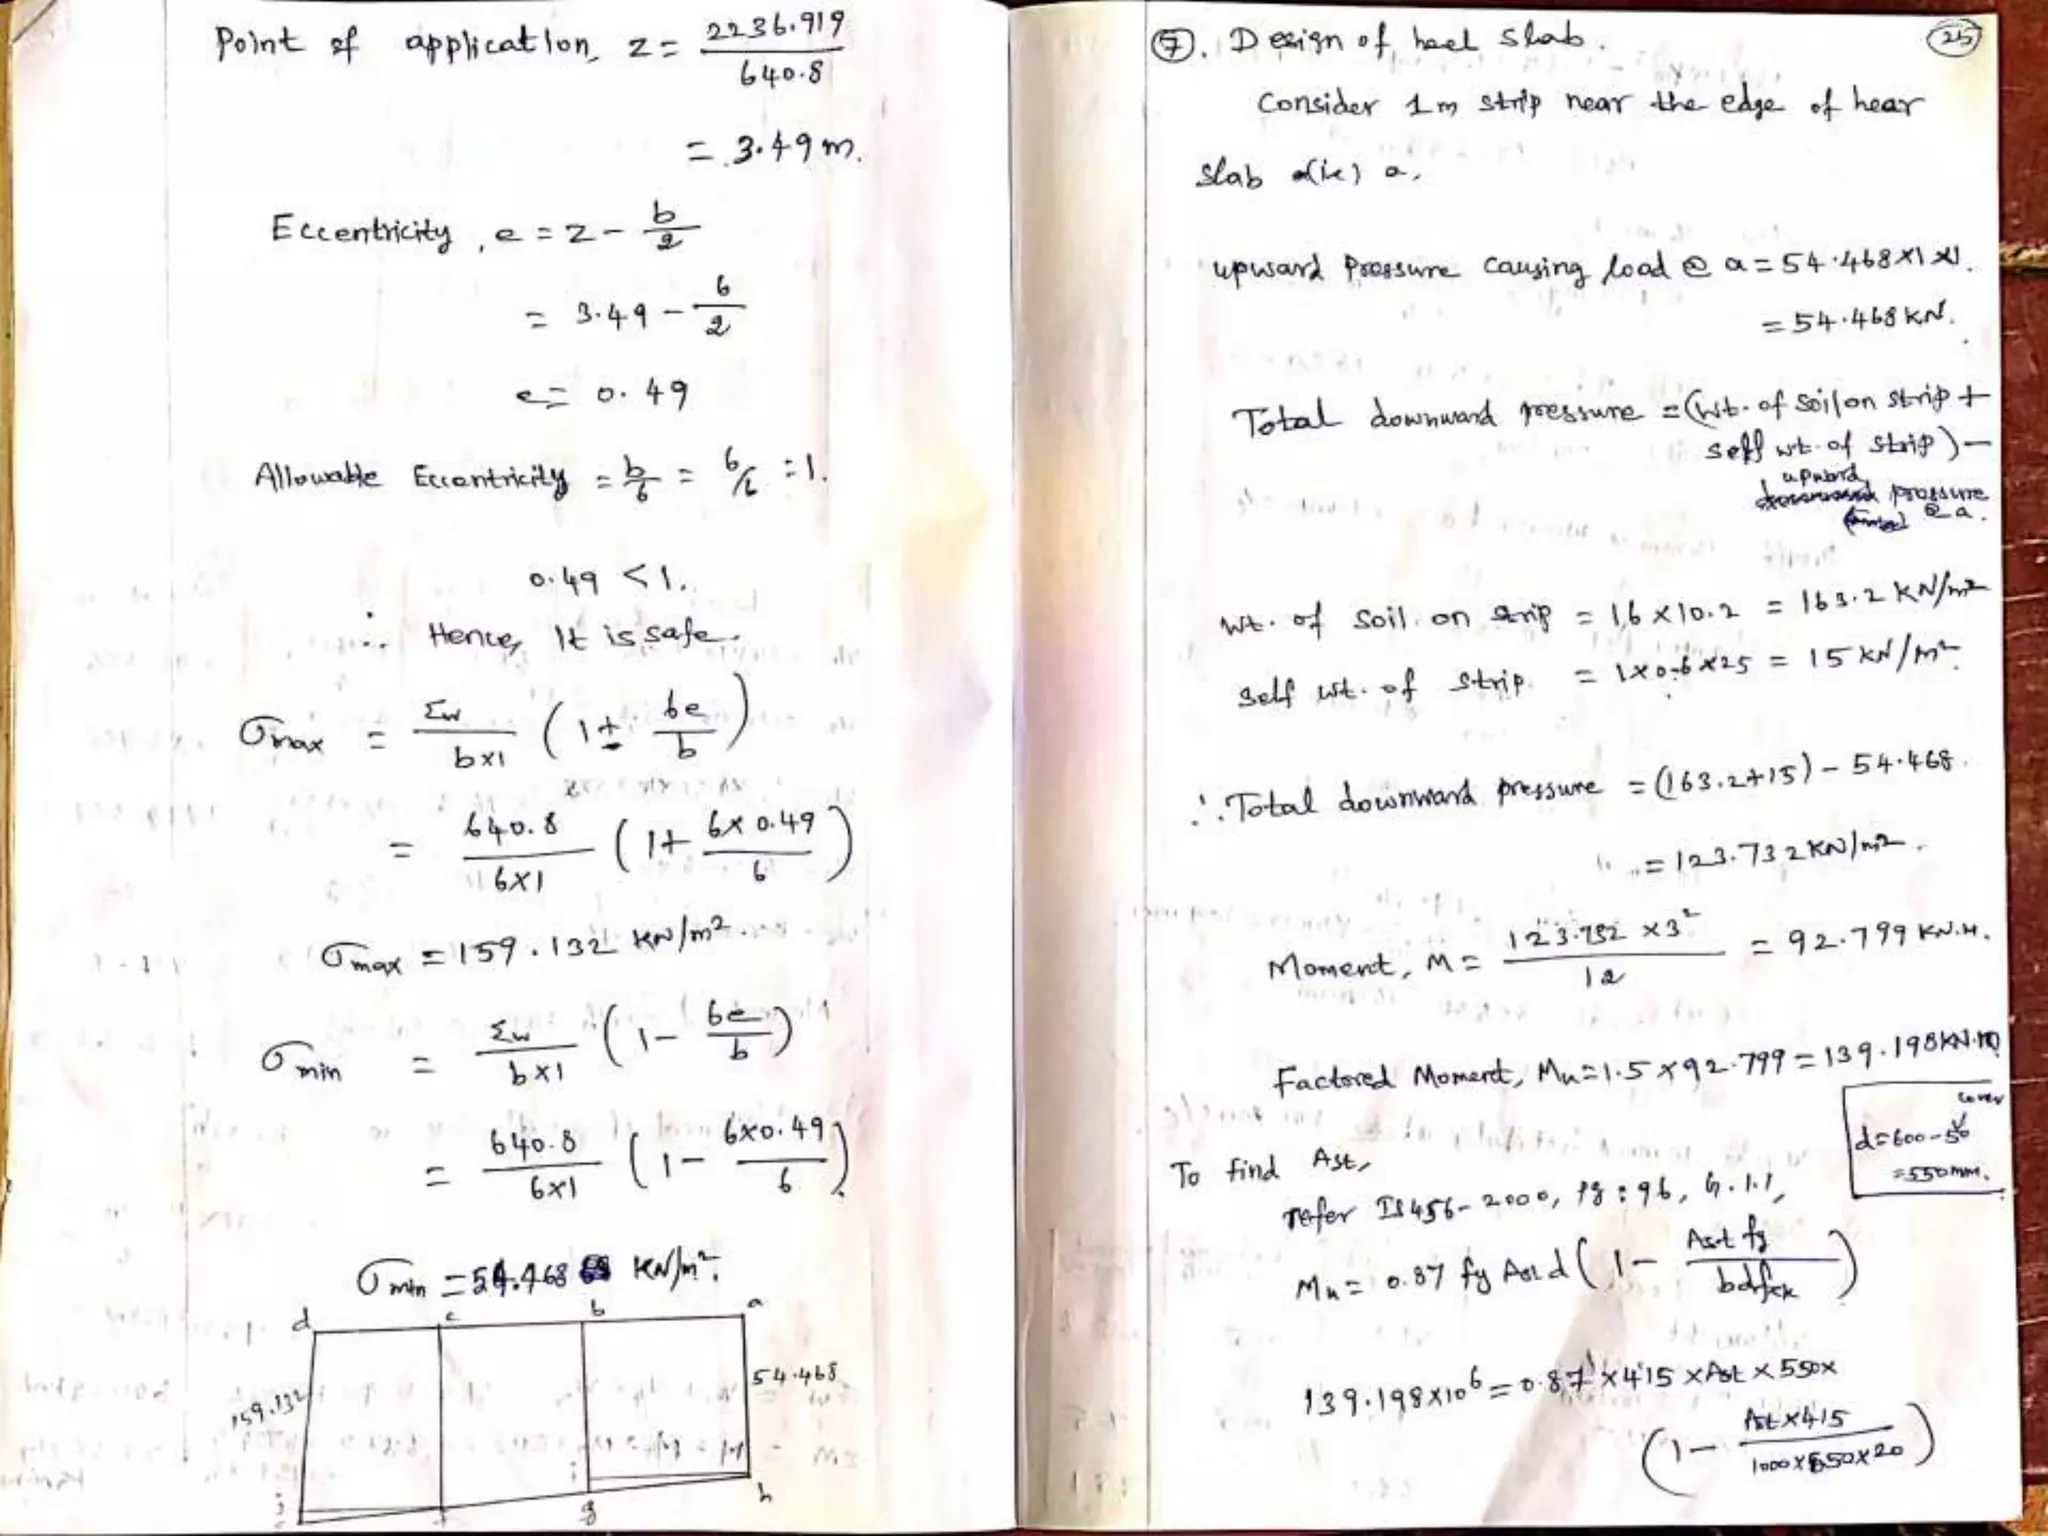 Point of application, z = 2236.919 / 640.8
= 3.49 m.
Eccentricity, e = z - b/2
= 3.49 - 6/2
e = 0.49
Allowable Eccentricity = b/6 = 6/6 = 1.
0.49 < 1.
∴ Hence, It is safe.
σmax = Σw / b×1 (1 + 6e/b)
= 640.8 / 6×1 (1 + 6×0.49 / 6)
σmax = 159.132 KN/m²
σmin = Σw / b×1 (1 - 6e/b)
= 640.8 / 6×1 (1 - 6×0.49 / 6)
σmin = 54.468 KN/m².
d c b a
159.132 54.468
g h
⑦. Design of heel slab. 25
Consider 1m strip near the edge of hear
slab (ie) a,
upward Pressure causing load @ a = 54.468×1×1.
= 54.468 KN.
Total downward pressure = (Wt. of soil on strip +
self wt. of strip) -
upward
pressure
@ a.
Wt. of soil on strip = 16 × 10.2 = 163.2 KN/m²
Self wt. of strip = 1×0.6×25 = 15 KN/m².
∴ Total downward pressure = (163.2+15) - 54.468.
= 123.732 KN/m².
Moment, M = 123.732 × 3² / 12 = 92.799 KN.M.
Factored Moment, Mu = 1.5 × 92.799 = 139.198 KN.m
cover
d = 600 - 50
= 550mm.
To find Ast,
refer IS 456-2000, Pg : 96, G.1.1,
Mu = 0.87 fy Ast d (1 - Ast fy / bdfck)
139.198×10⁶ = 0.87 × 415 × Ast × 550 ×
(1 - Ast×415 / 1000×550×20)